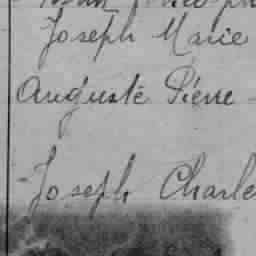 Joseph Marie
Auguste Pierre
Joseph Charle